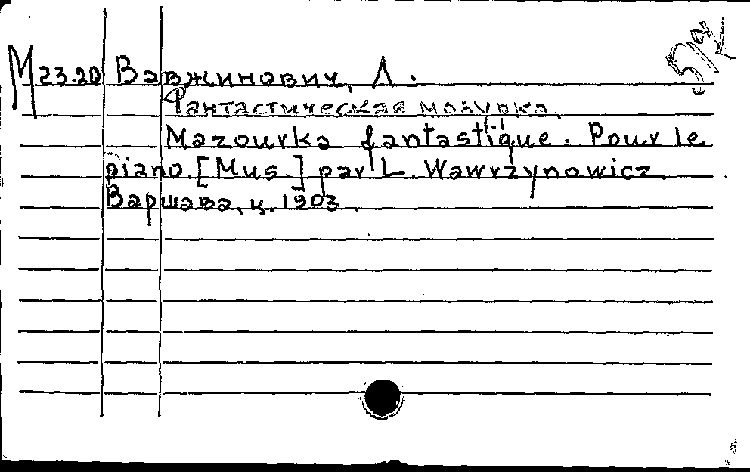 М 23.20 Вавжинович, Л.
Фантастическая мазурка.
Mazourka fantastique. Pour le
piano. [Mus.] par L. Wawrzynowicz.
Варшава, ц. 1903.